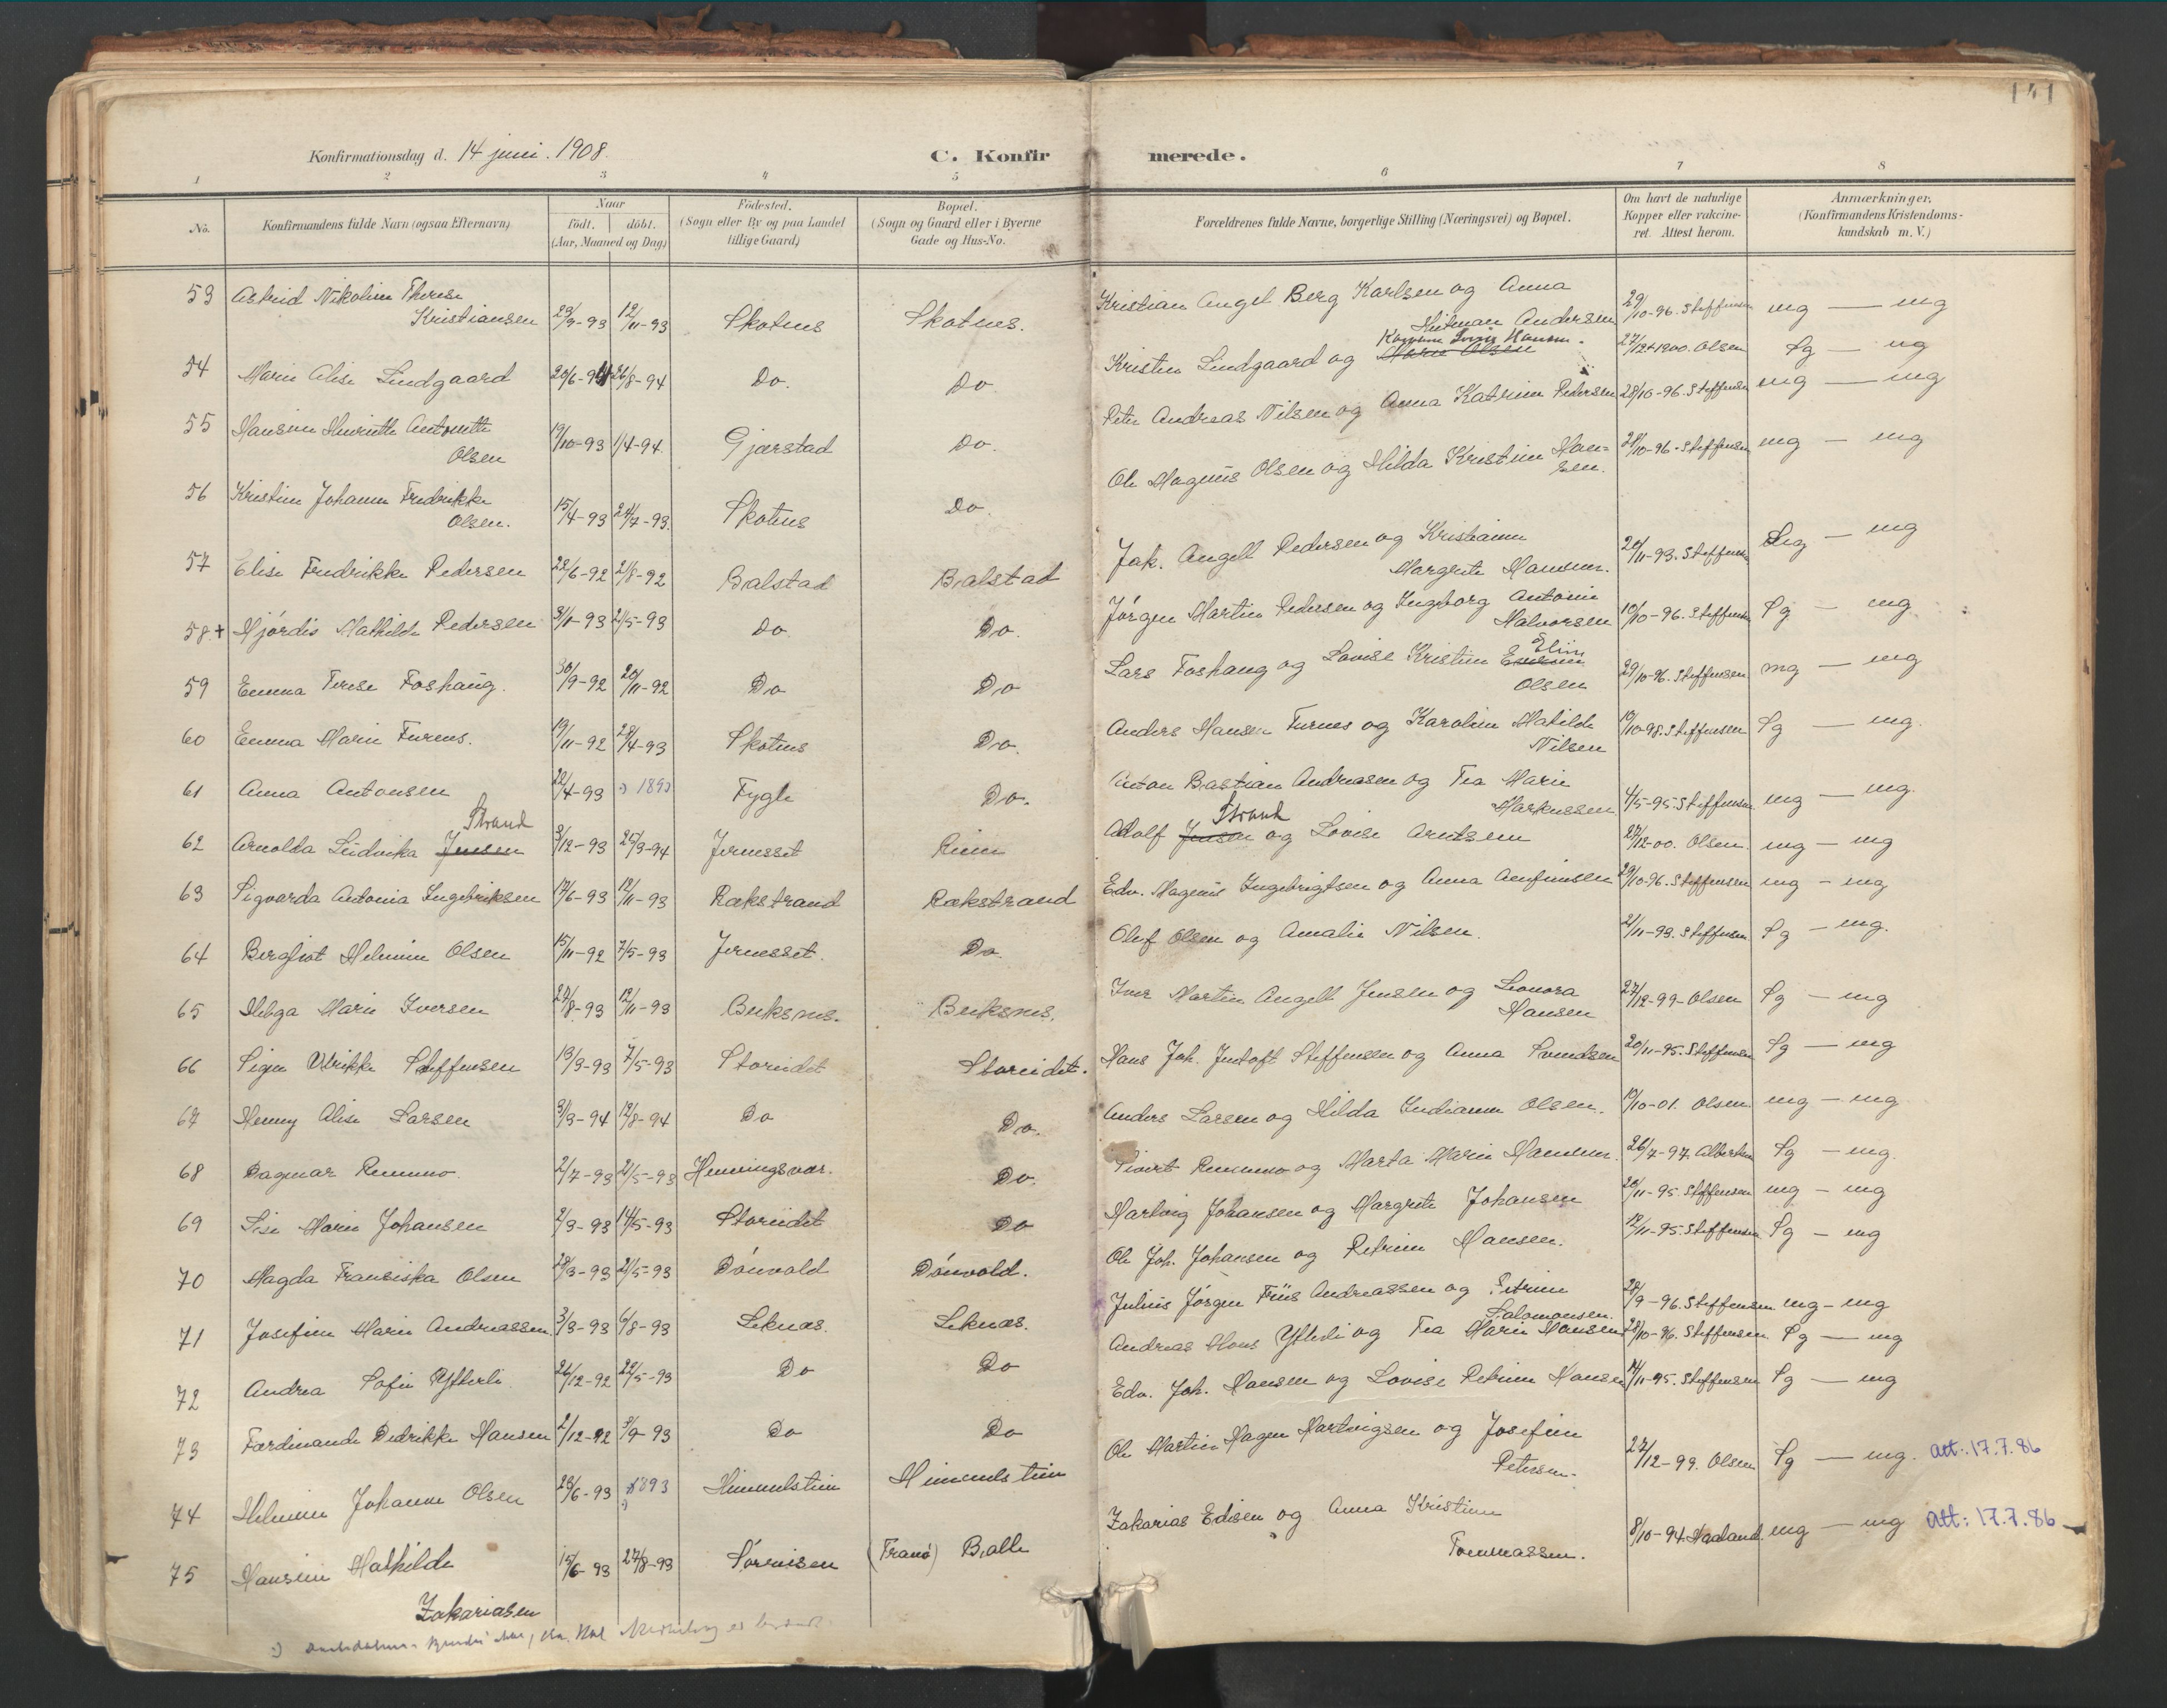 141
Konfirmationsdag d. 14 juni. 1908.
C. Konfirmerede.
1 2 3 4 5 6 7 8
No.
Konfirmandens fulde Navn (ogsaa Efternavn)
Naar
født. døbt.
(Aar, Maaned og Dag)
Fødested.
(Sogn eller By og paa Landet
tillige Gaard)
Bopæl.
(Sogn og Gaard eller i Byerne
Gade og Hus-No.
Forældrenes fulde Navne, borgerlige Stilling (Næringsvei) og Bopæl.
Om havt de naturlige
Kopper eller vakcine-
ret. Attest herom.
Anmærkninger.
(Konfirmandens Kristendoms-
kundskab m. V.)
53 Astrid Nikoline Therese
Kristiansen 29/9-93 12/11-93 Skotnes Skotnes. Kristian Angel Berg Karlsen og Anna
Hitman Andersen 29/10-96. Steffensen mg — mg
54 Marie Alise Lindgaard 20/6-94 26/8-94 Do. Do Kristen Lindgaard og Marie Olsen
Karoline Lovise Hansen. 27/12 1900. Olsen Sg — mg
55 Hansine Henriette Antonette
Olsen 19/10-93 1/4-94. Gjærstad Do. Peter Andreas Nilsen og Anna Katrine Pedersen 28/10-96. Steffensen mg — mg
56 Kristine Johanne Fredrikke
Olsen. 15/4-93 24/7-93. Skotnes Do. Ole Magnus Olsen og Hilda Kristine Han-
sen. 28/10-96. Steffensen mg — mg
57 Elise Fredrikke Pedersen 22/6-92 21/8-92 Balstad Balstad Jak. Angell Pedersen og Kristianne
Margrete Hansen. 20/11-93. Steffensen Sg — mg
58.+ Hjørdis Mathilde Pedersen 31/1-93 21/5-93 Do. Do. Jørgen Martin Pedersen og Ingeborg Antonie
Halvorsen 10/10-96. Steffensen Sg — mg.
59 Emma Terese Foshaug. 30/9-92 20/11-92 Do Do Lars Foshaug og Lovise Kristine Eline
Olsen 29/10-96. Steffensen mg — mg
60 Emma Marie Furnes. 19/11-92 29/4-93 Skotnes Do. Anders Hansen Furnes og Karoline Matilde
Nilsen 19/10-98. Steffensen Sg — mg.
61 Anna Antonsen 22/4-93 :) 1893 Fygle Do. Anton Bastian Andreasen og Tea Marie
Markussen 4/5-95. Steffensen mg — mg.
62 Arnolda Ludvika Jensen
Strand 3/12-93 25/3-94 Jernesset Reine Adolf Jensen og Lovise Arntsen
Strand 27/12-00. Olsen. mg — mg
63 Sigvarda Antonia Ingebriksen 17/6-93 12/11-93 Rækstrand Rækstrand Edv. Magnus Ingebrigtsen og Anna Arnfinnsen 29/10-96. Steffensen mg - mg
64 Bergliot Helmine Olsen 15/11-92 7/5-93 Jernesset. Do. Oluf Olsen og Amalie Nilsen. 21/11-93. Steffensen Sg — mg.
65 Helga Marie Iversen 27/8-93 12/11-93 Buksnes. Buksnes. Iver Martin Angell Jensen og Leonora
Hansen 27/12-99 Olsen Sg — mg
66 Signe Ulrikke Steffensen 13/3-93 7/5-93 Storeidet Storeidet. Hans Joh. Jentoft Steffensen og Anna Svendsen 20/11-95. Steffensen Sg — mg
67 Henny Alise Larsen 3/3-94 12/8-94 Do Do. Anders Larsen og Hilda Indianne Olsen. 19/10-01. Olsen. mg — mg
68 Dagmar Remmo. 2/7-93 21/5-93 Henningsvær. Do. Sivert Remmo og Marta Marie Hansen. 26/7-97. Albertsen Sg — mg.
69 Lise Marie Johansen 2/3-93 14/5-93 Storeidet Do Hartvig Johansen og Margrete Johansen 20/11-95. Steffensen mg — mg
70 Magda Fransiska Olsen 28/3-93 21/5-93 Dønvold Dønvold. Ole Joh. Johansen og Petrine Hansen. 12/11-95. Steffensen Sg — mg
71 Josefine Marie Andreassen 3/3-93 6/8-93 Leknæs. Leknæs. Julius Jørgen Friis Andreassen og Petrine
Salomonsen. 28/9-96. Steffensen mg — mg
72 Andrea Sofie Ytterli 26/12-92 22/5-93 Do Do Andreas Mons Ytterli og Tea Marie Hansen 28/10-96. Steffensen Sg — mg
73 Ferdinande Dedrikke Hansen 2/12-92 3/9-93 Do Do Edv. Joh. Hansen og Lovise Petrine Hansen 14/11-95. Steffensen Sg — mg
74 Helmine Johanne Olsen 23/6-93 1893 :) Himmelstein Himmelstein Ole Martin Hagen Hartvigsen og Josefine
Petersen. 27/12-99. Olsen Sg — mg. att: 17.7.86
75 Hansine Mathilde
Zakariasen 15/6-93 27/8-93 Sørenisen (Tranø) Balle Zakarias Edisen og Anna Kristine
Tommassen. 8/10-94. Haaland mg — mg att: 17.7.86